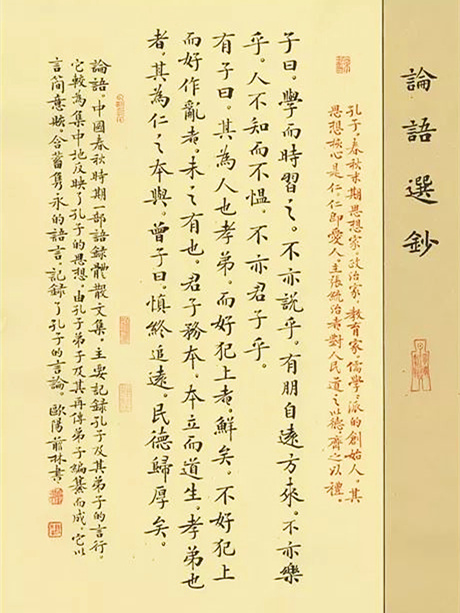 論語選鈔
孔子。春秋末期思想家。政治家。教育家。儒學派的創始人。其
思想核心是仁。仁即愛人。主張統治者對人民道之以德。齊之以禮。
子曰。學而時習之。不亦說乎。有朋自遠方來。不亦樂
乎。人不知而不慍。不亦君子乎。
有子曰。其為人也孝弟。而好犯上者。鮮矣。不好犯上
而好作亂者。未之有也。君子務本。本立而道生。孝弟也
者。其為仁之本與。曾子曰。慎終追遠。民德歸厚矣。
論語。中國春秋時期一部語録體散文集。主要記録孔子及其弟子的言行。
它較為集中地反映了孔子的思想。由孔子弟子及其再傳弟子編纂而成。它以
言简意賅。含蓄隽永的語言。記録了孔子的言論。歐陽林書